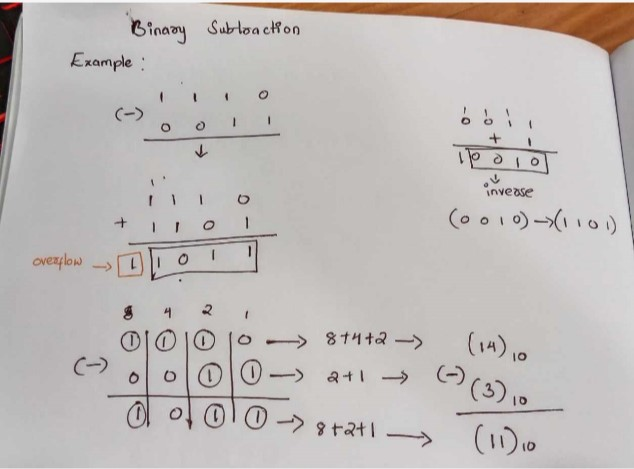 Binary Subtraction
Example :
1 1 1 0
(-)
0 0 1 1
↓
1
1 1 1 0
+ 1 1 0 1
overflow → 1 1 0 1 1
1 1 1
0 0 1 1
+ 1
1 0 0 1 0
↓
inverse
(0 0 1 0) → (1 1 0 1)
8 4 2 1
1 1 1 0 → 8+4+2 → (14)10
(-) 0 0 1 1 → 2+1 → (-) (3)10
1 0 1 1 → 8+2+1 → (11)10